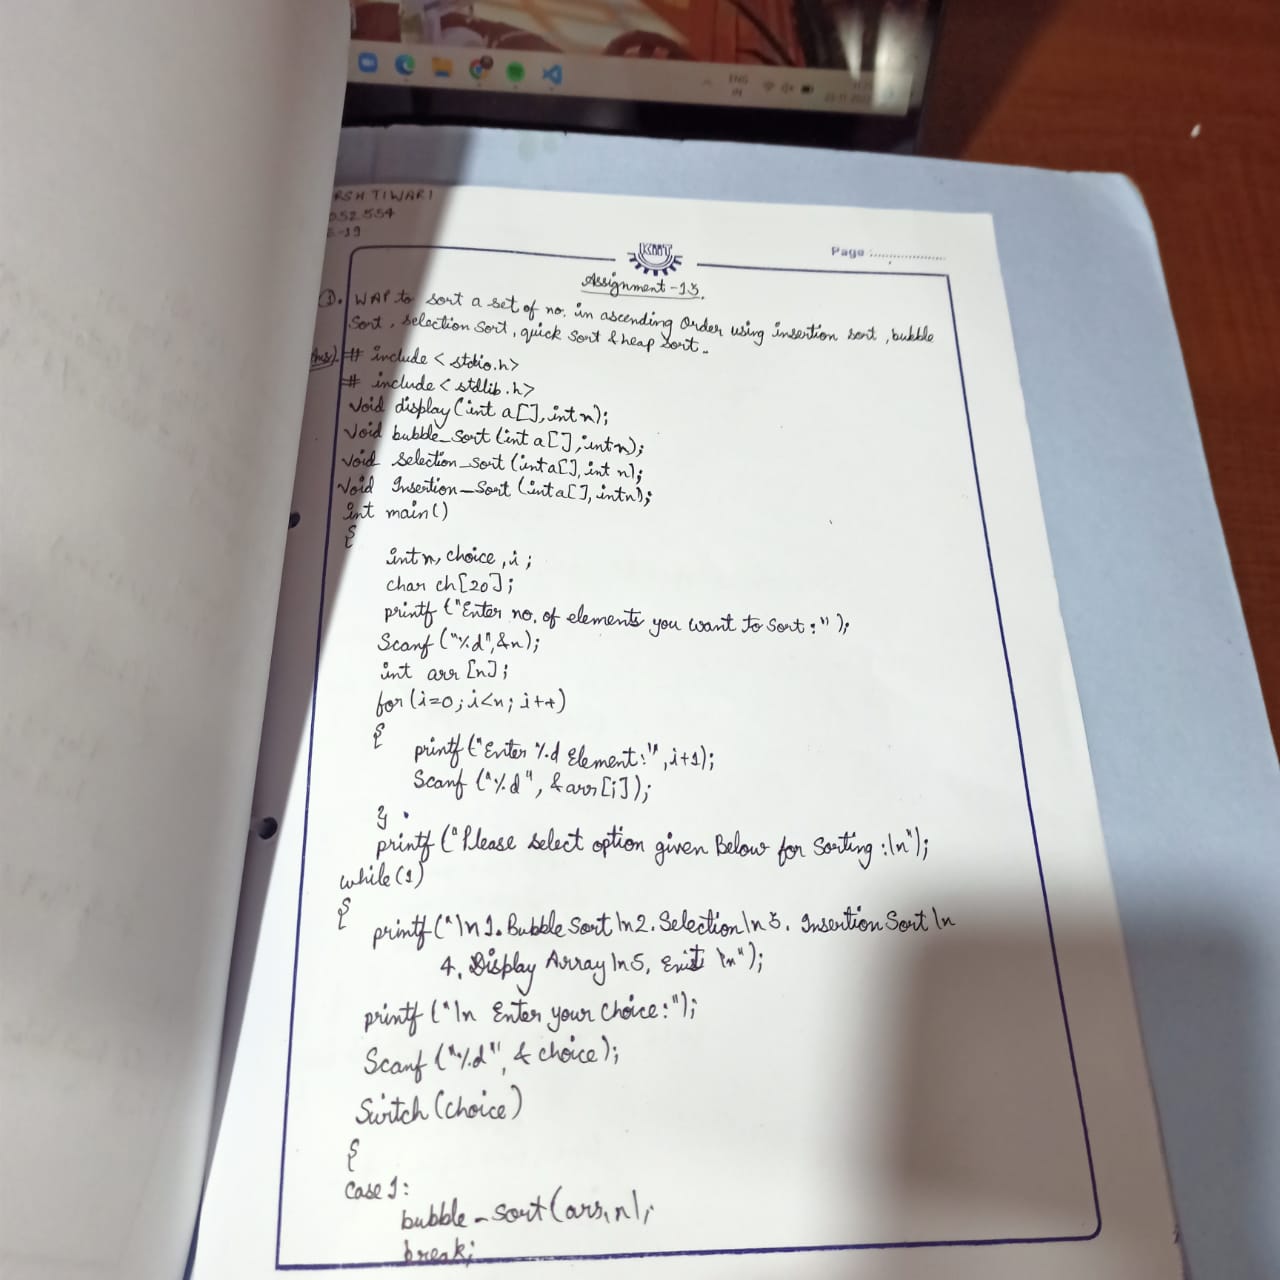 RSH TIWARI
052554
E-19
KIIT
Page ..................
Assignment -13.
①. WAP to sort a set of no. in ascending Order using insertion sort, bubble
Sort, selection sort, quick sort & heap sort.
Ans). # include < stdio.h>
# include < stdlib.h>
Void display (int a[], int n);
Void bubble_sort (int a[], int n);
Void selection_sort (int a[], int n);
Void Insertion_Sort (int a[], int n);
int main()
{
int n, choice, i;
char ch[20];
printf ("Enter no. of elements you want to sort:");
Scanf ("%d", &n);
int arr [n];
for (i=0; i<n; i++)
{
printf ("Enter %d Element:", i+1);
Scanf ("%d", &arr[i]);
}
printf ("Please select option given Below for Sorting :\n");
while (1)
{
printf ("\n1. Bubble Sort \n2. Selection\n3. Insertion Sort \n
4. Display Array \n5. Exit \n");
printf ("\n Enter your Choice:");
Scanf ("%d", & choice);
Switch (choice)
{
Case 1:
bubble_sort (arr, n);
break;
ENG